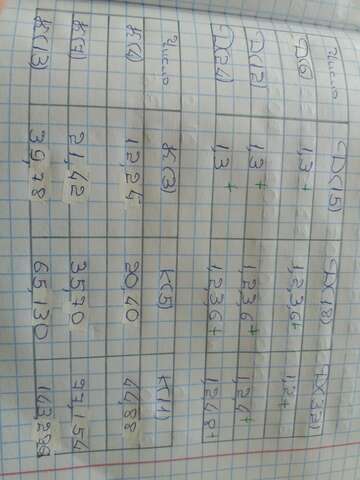 Число Д(15) Д(18) Д(32)
Д(6) 1,3 + 1,2,3,6 + 1,2 +
Д(12) 1,3 + 1,2,3,6 + 1,2,4 +
Д(24) 1,3 + 1,2,3,6 + 1,2,4,8 +
Число К(3) К(5) К(11)
К(4) 12,24 20,40 44,88
К(7) 21,42 35,70 77,154
К(13) 39,78 65,130 143,286